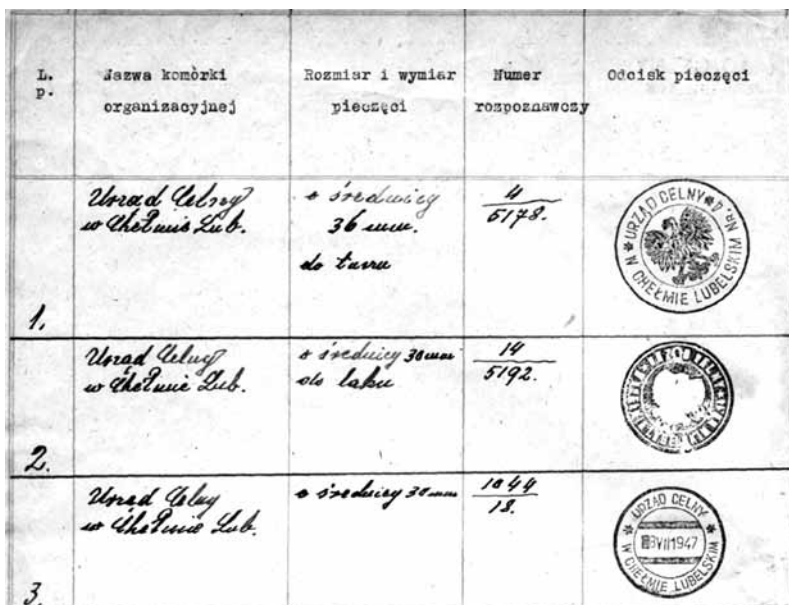 L.
p.
Nazwa komórki
organizacyjnej
Rozmiar i wymiar
pieczęci
Numer
rozpoznawczy
Odcisk pieczęci
1.
Urząd Celny
w Chełmie Lub.
o średnicy
36 mm.
do tuszu
4
5178.
URZĄD CELNY
Nr. 4
W CHEŁMIE LUBELSKIM
2.
Urząd Celny
w Chełmie Lub.
o średnicy 30 mm
do laku
14
5192.
3.
Urząd Celny
w Chełmie Lub.
o średnicy 30 mm
1044
13.
URZĄD CELNY
VII 1947
W CHEŁMIE LUBELSKIM